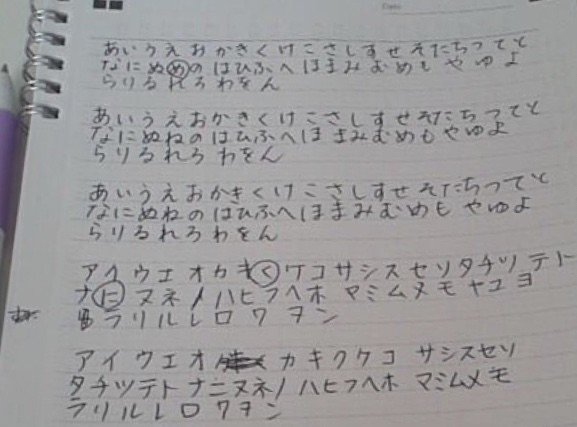 Date
あいうえおかきくけこさしすせそたちつてと
なにぬめのはひふへほまみむめも やゆよ
らりるれろ わをん
あいうえおかきくけこさしすせそたちつてと
なにぬねのはひふへほまみむめもやゆよ
らりるれろ わをん
あいうえおかきくけこさしすせそたちつてと
なにぬねのはひふへほまみむめも やゆよ
らりるれろわをん
アイウエオカキくケコサシスセソタチツテト
ナにヌネノハヒフヘホ マミムヌモ ヤユヨ
ラリルレロワヲン
アイウエオ カキクケコ サシスセソ
タチツテトナニヌネノハヒフヘホ マミムメモ
ラリルレロワヲン